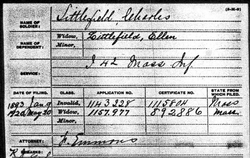 (3-M-R)
NAME OF SOLDIER: Littlefield Charles
NAME OF DEPENDENT: Widow, Littlefield, Ellen
Minor,
SERVICE: I 42 Mass Inf
DATE OF FILING. CLASS. APPLICATION NO. CERTIFICATE NO. STATE FROM WHICH FILED.
1893 Jan 9 Invalid, 1143328 1115804 Mass
May 20 Widow, 1157977 892886 Mass
Minor,
ATTORNEY: Simmons